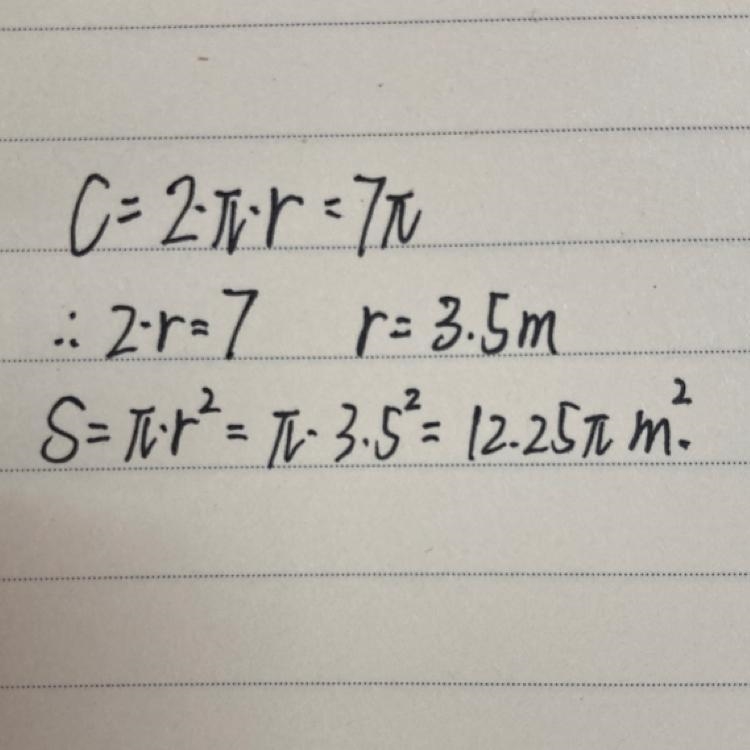 C = 2·π·r = 7π
∴ 2·r = 7 r = 3.5m
S = π·r² = π·3.5² = 12.25π m².